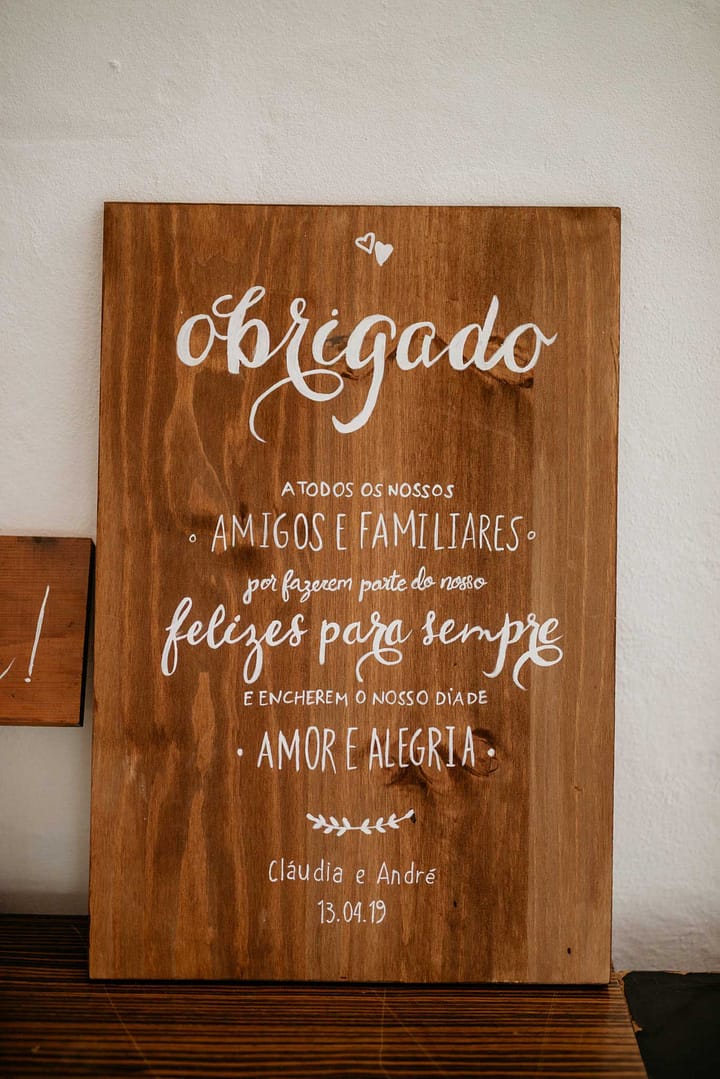 obrigado
A TODOS OS NOSSOS
AMIGOS E FAMILIARES
por fazerem parte do nosso
felizes para sempre
E ENCHEREM O NOSSO DIA DE
AMOR E ALEGRIA
Cláudia e André
13.04.19
!